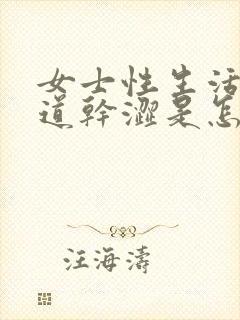 女士性生活
道幹澀是怎
汪海濤